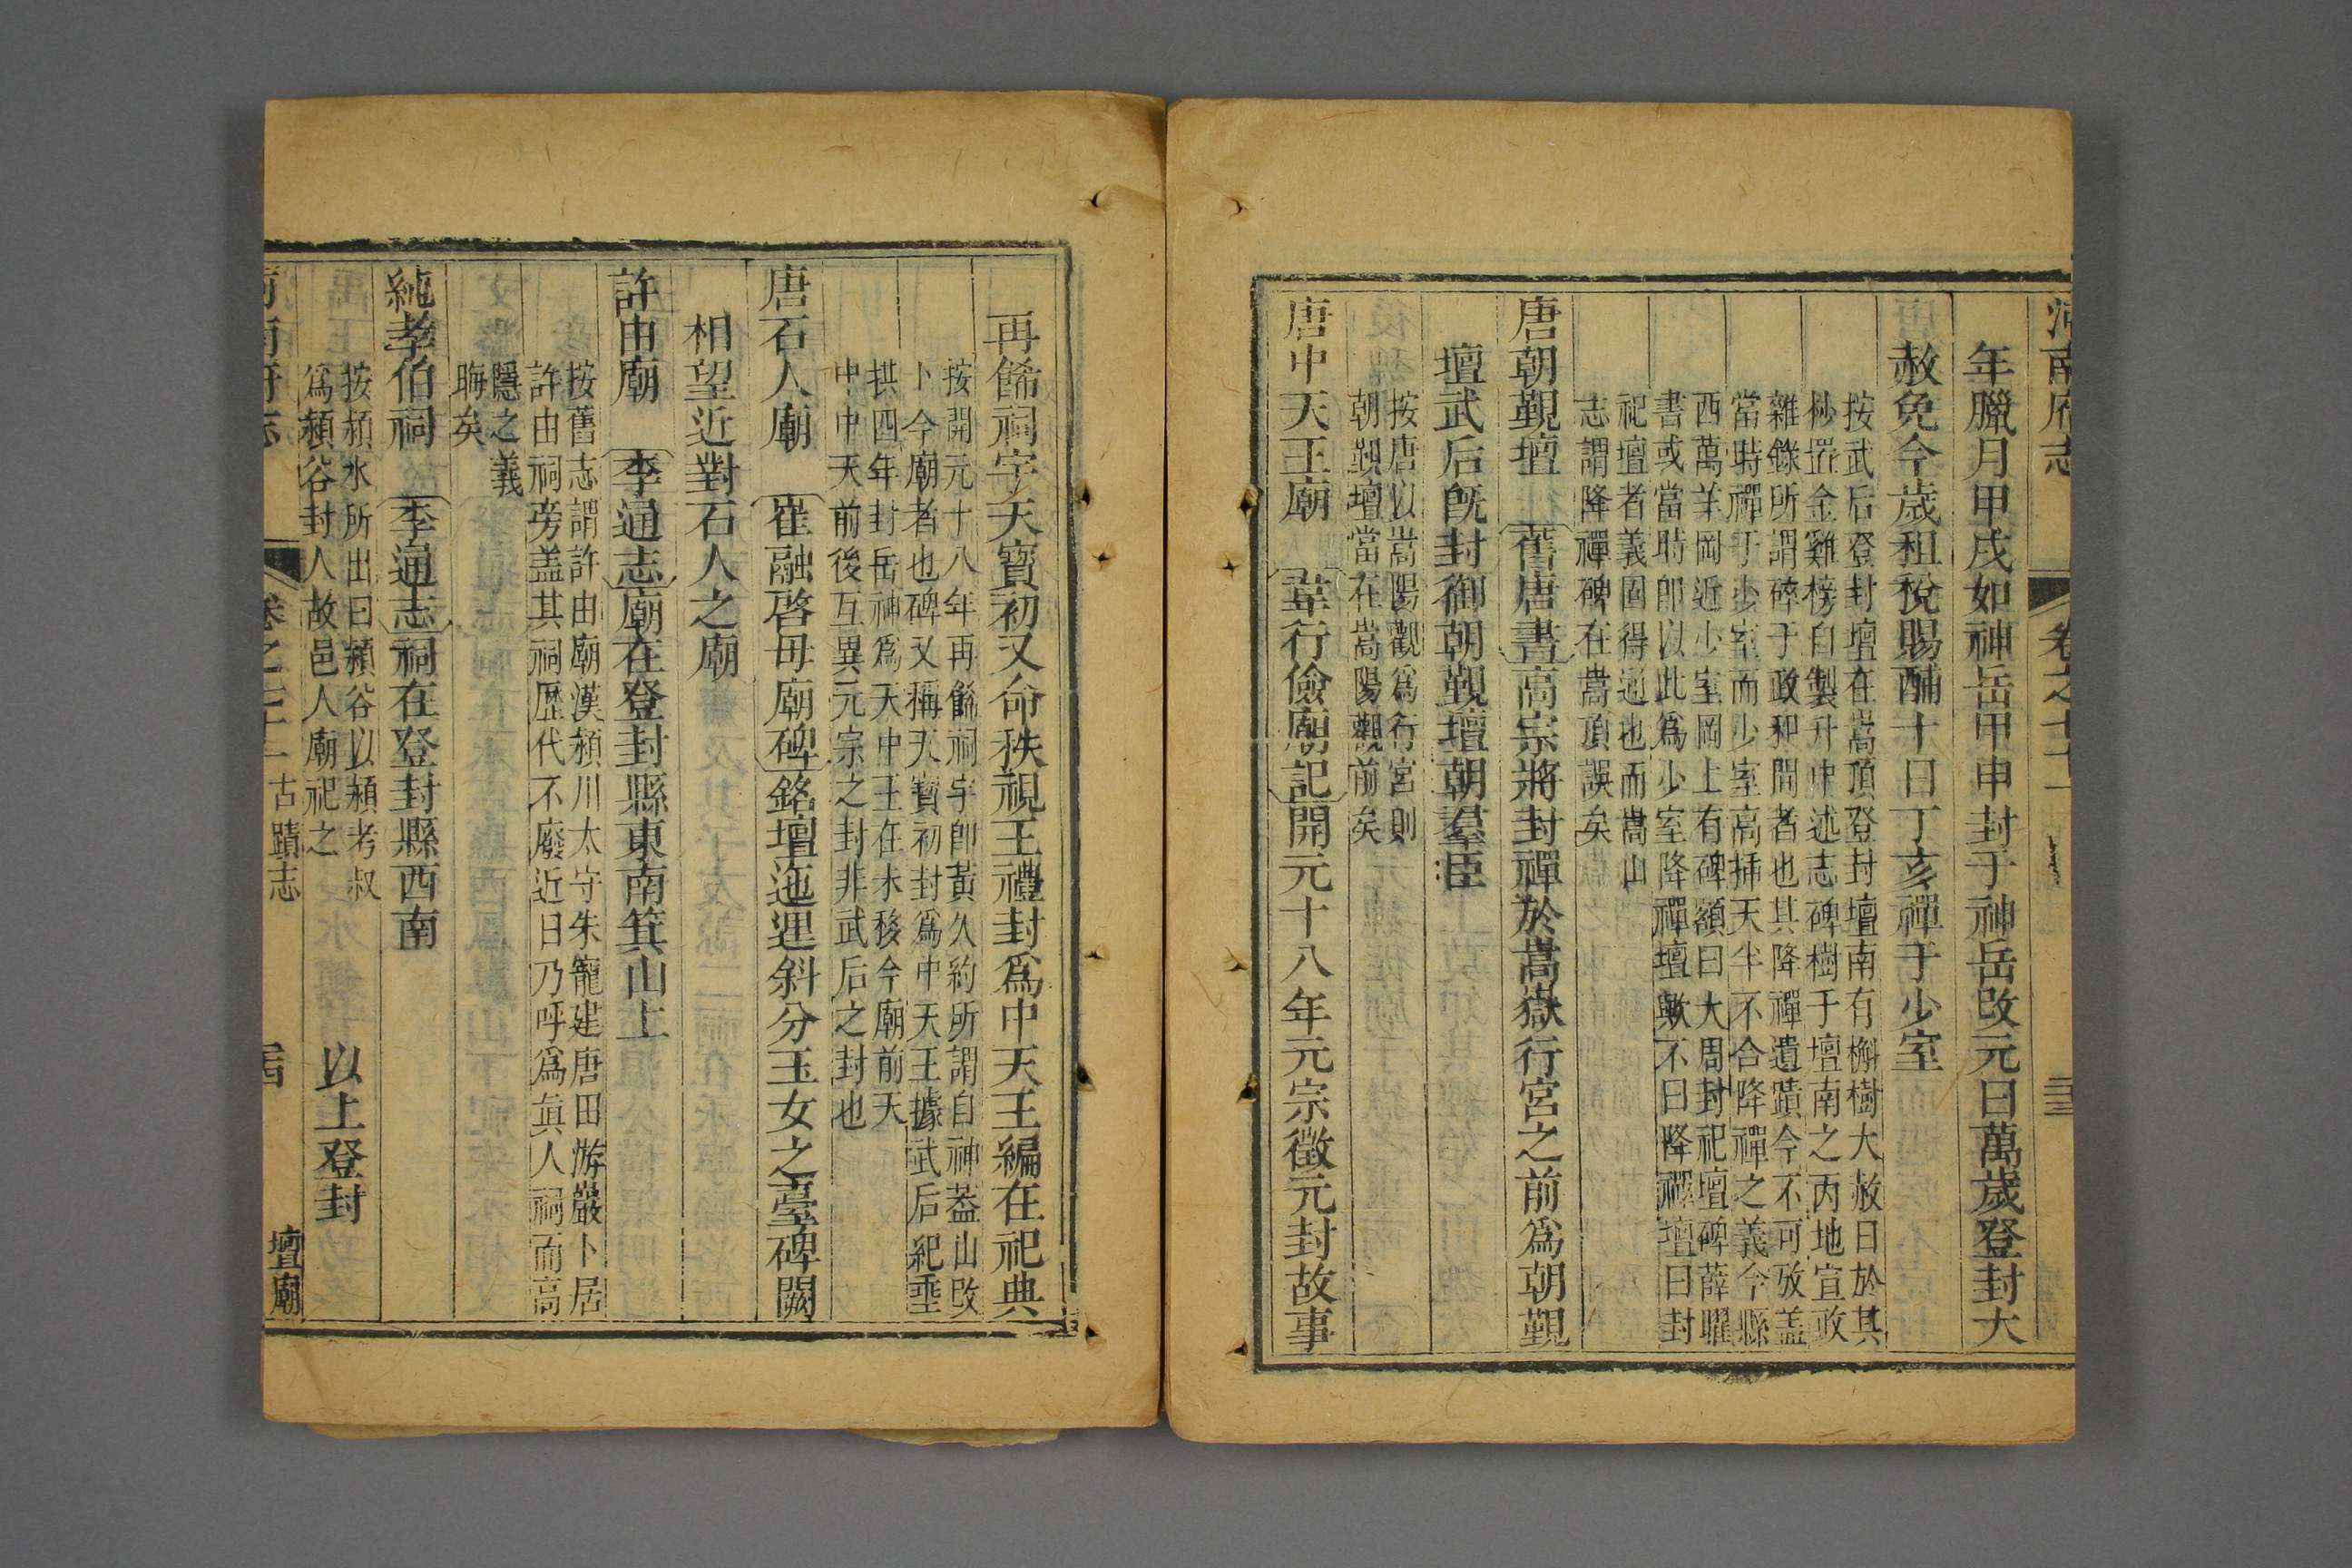 河南府志 卷之七十一
年臘月甲戌如神岳甲申封于神岳改元曰萬歲登封大
赦免今歲租稅賜酺十日丁亥禪于少室
按武后登封壇在嵩頂登封壇南有槲樹大赦日於其
杪置金雞榜自製升中述志碑樹于壇南之丙地宣政
雜錄所謂碎于政和間者也其降禪遺蹟今不可攷盖
當時禪于少室而少室高揷天半不合降禪之義今縣
西萬羊岡近少室岡上有碑額曰大周封祀壇碑薛曜
書或當時卽以此爲少室降禪壇歟不曰降禪壇曰封
祀壇者義圓得通也而嵩山
志謂降禪碑在嵩頂誤矣
唐朝覲壇 舊唐書高宗將封禪於嵩嶽行宮之前爲朝覲
壇武后旣封御朝覲壇朝羣臣
按唐以嵩陽觀爲行宮則
朝覲壇當在嵩陽觀前矣
唐中天王廟 韋行儉廟記開元十八年元宗徵元封故事
再餙祠宇天寶初又命秩視王禮封爲中天王編在祀典
按開元十八年再餙祠宇卽黃久約所謂自神葢山改
卜今廟者也碑又稱天寶初封爲中天王據武后紀垂
拱四年封岳神爲天中王在未移今廟前天
中中天前後互異元宗之封非武后之封也
唐石人廟 崔融啓母廟碑銘壇迤逦斜分玉女之臺碑闕
相望近對石人之廟
許由廟 李通志廟在登封縣東南箕山上
按舊志謂許由廟漢潁川太守朱寵建唐田游巖卜居
許由祠旁盖其祠歷代不廢近日乃呼爲眞人祠而高
隱之義
晦矣
純孝伯祠 李通志祠在登封縣西南
按潁水所出曰潁谷以潁考叔
爲潁谷封人故邑人廟祀之 以上登封
河南府志 卷之七十一 古蹟志 壇廟